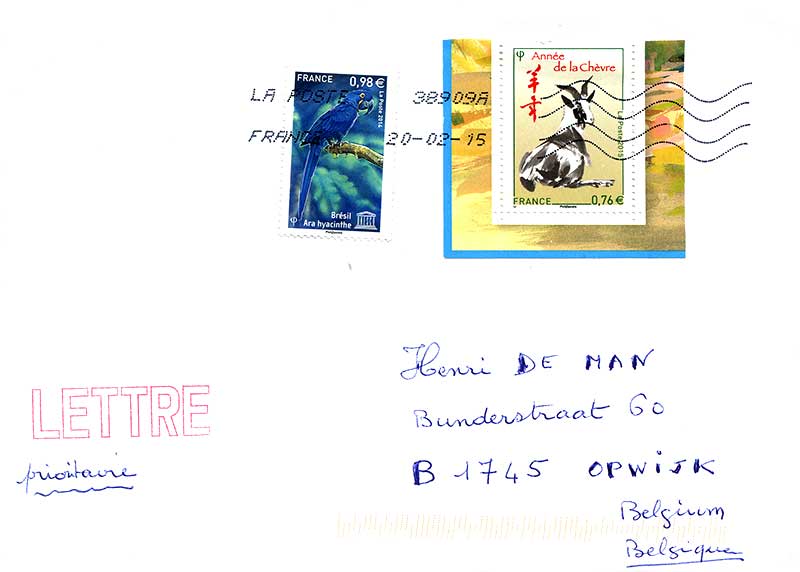 FRANCE 0,98 €
La Poste 2014
Brésil
Ara hyacinthe
Phil@poste
Année
de la Chèvre
羊年
La Poste 2015
FRANCE 0,76 €
Phil@poste
LA POSTE 38909A
FRANCE 20-02-15
LETTRE
prioritaire
Henri DE MAN
Bunderstraat 60
B 1745 OPWIJK
Belgium
Belgique